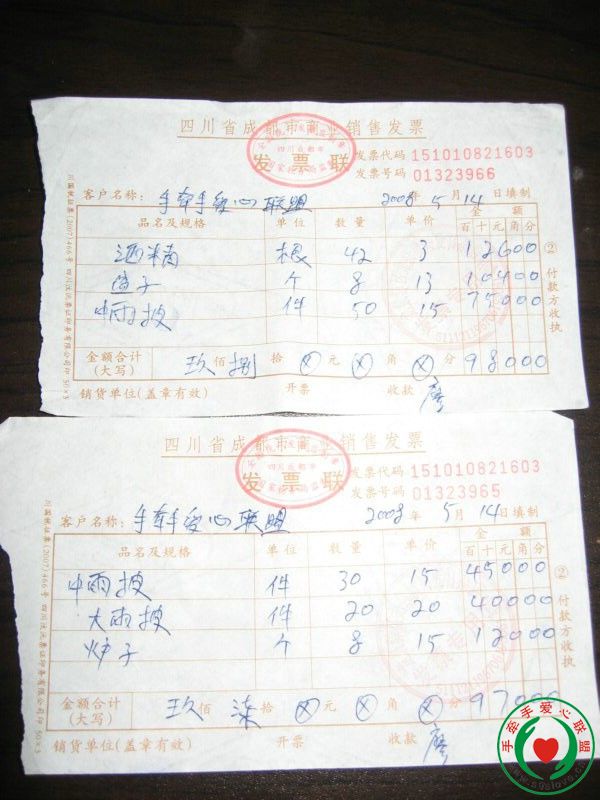 四川省成都市商业销售发票
发票联
四川省成都市
发票代码 151010821603
发票号码 01323966
客户名称: 手牵手爱心联盟 2008 年 5 月 14 日填制
品名及规格 单位 数量 单价 金额
百 十 元 角 分
酒精 根 42 3 12600
个 8 13 10400
中雨披 件 50 15 75000
金额合计(大写) 玖 佰 捌 拾 ⊗ 元 ⊗ 角 ⊗ 分 98000
销货单位(盖章有效) 开票 收款 廖
② 付款方收执
四川省成都市商业销售发票
发票联
四川省成都市
发票代码 151010821603
发票号码 01323965
客户名称: 手牵手爱心联盟 2008 年 5 月 14 日填制
品名及规格 单位 数量 单价 金额
百 十 元 角 分
中雨披 件 30 15 45000
大雨披 件 20 20 40000
炉子 个 8 15 12000
金额合计(大写) 玖 佰 柒 拾 ⊗ 元 ⊗ 角 ⊗ 分 97000
销货单位(盖章有效) 开票 收款 廖
② 付款方收执
手牵手爱心联盟